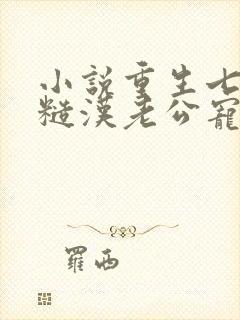 小說重生七
糙漢老公寵
羅西